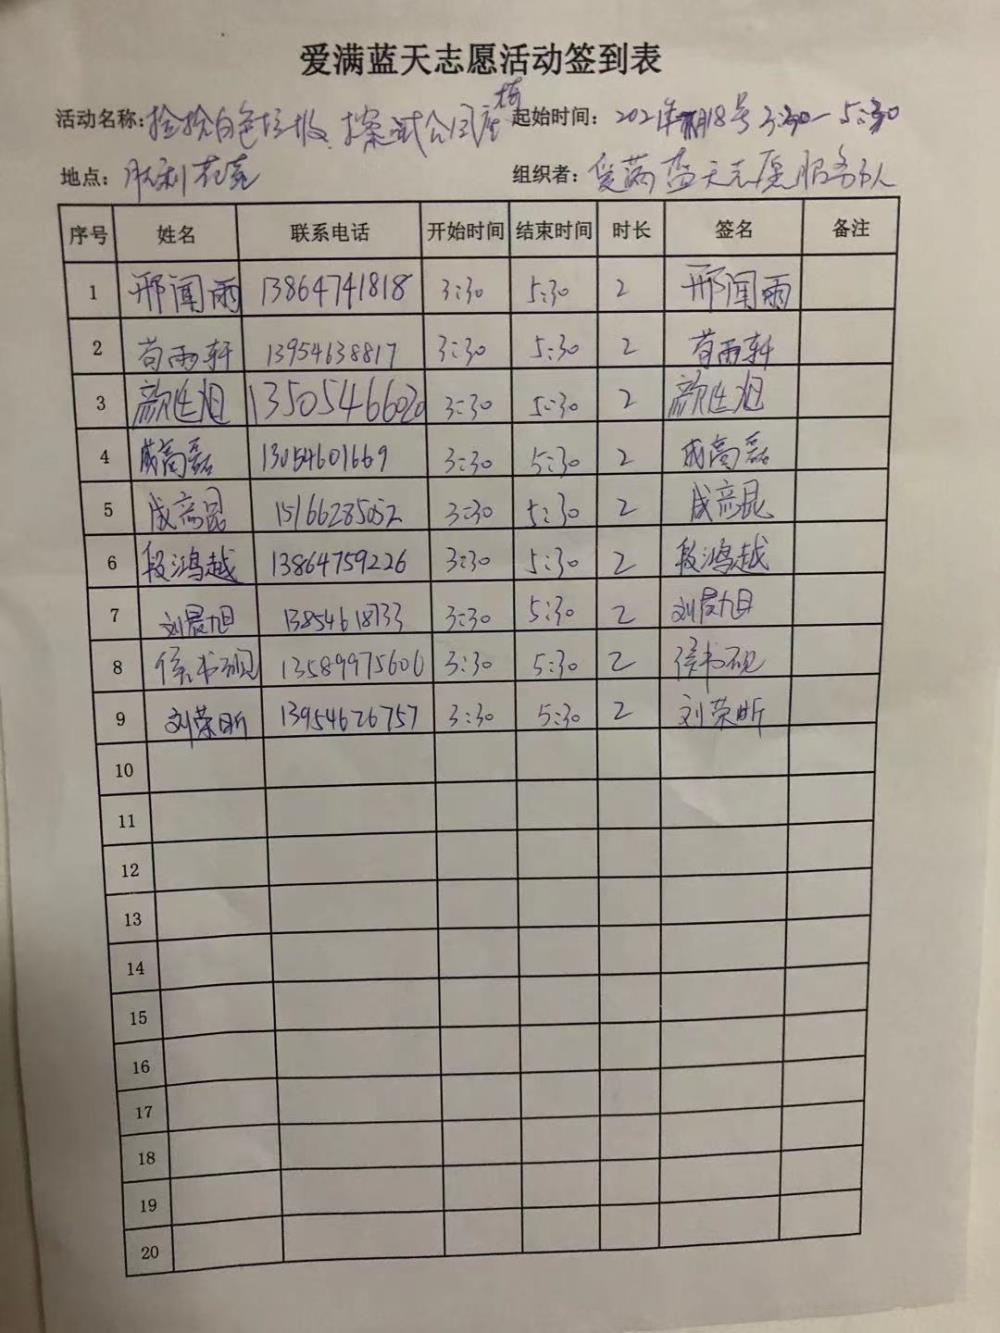 爱满蓝天志愿活动签到表
活动名称: 捡拾白色垃圾 擦试公园座椅 起始时间: 2021年 月18号 3:30-5:30
地点: 胜利花苑 组织者: 爱满蓝天志愿服务队
序号 姓名 联系电话 开始时间 结束时间 时长 签名 备注
1 邢闻雨 13864741818 3:30 5:30 2 邢闻雨
2 苟雨轩 13954638817 3:30 5:30 2 苟雨轩
3 13505466020 3:30 5:30 2
4 成高磊 13054601669 3:30 5:30 2 成高磊
5 成高昆 15166285052 3:30 5:30 2 成高昆
6 段鸿越 13864759226 3:30 5:30 2 段鸿越
7 刘晨旭 13854618733 3:30 5:30 2 刘晨旭
8 侯书砚 13589975606 3:30 5:30 2 侯书砚
9 刘荣昕 13954626757 3:30 5:30 2 刘荣昕
10
11
12
13
14
15
16
17
18
19
20